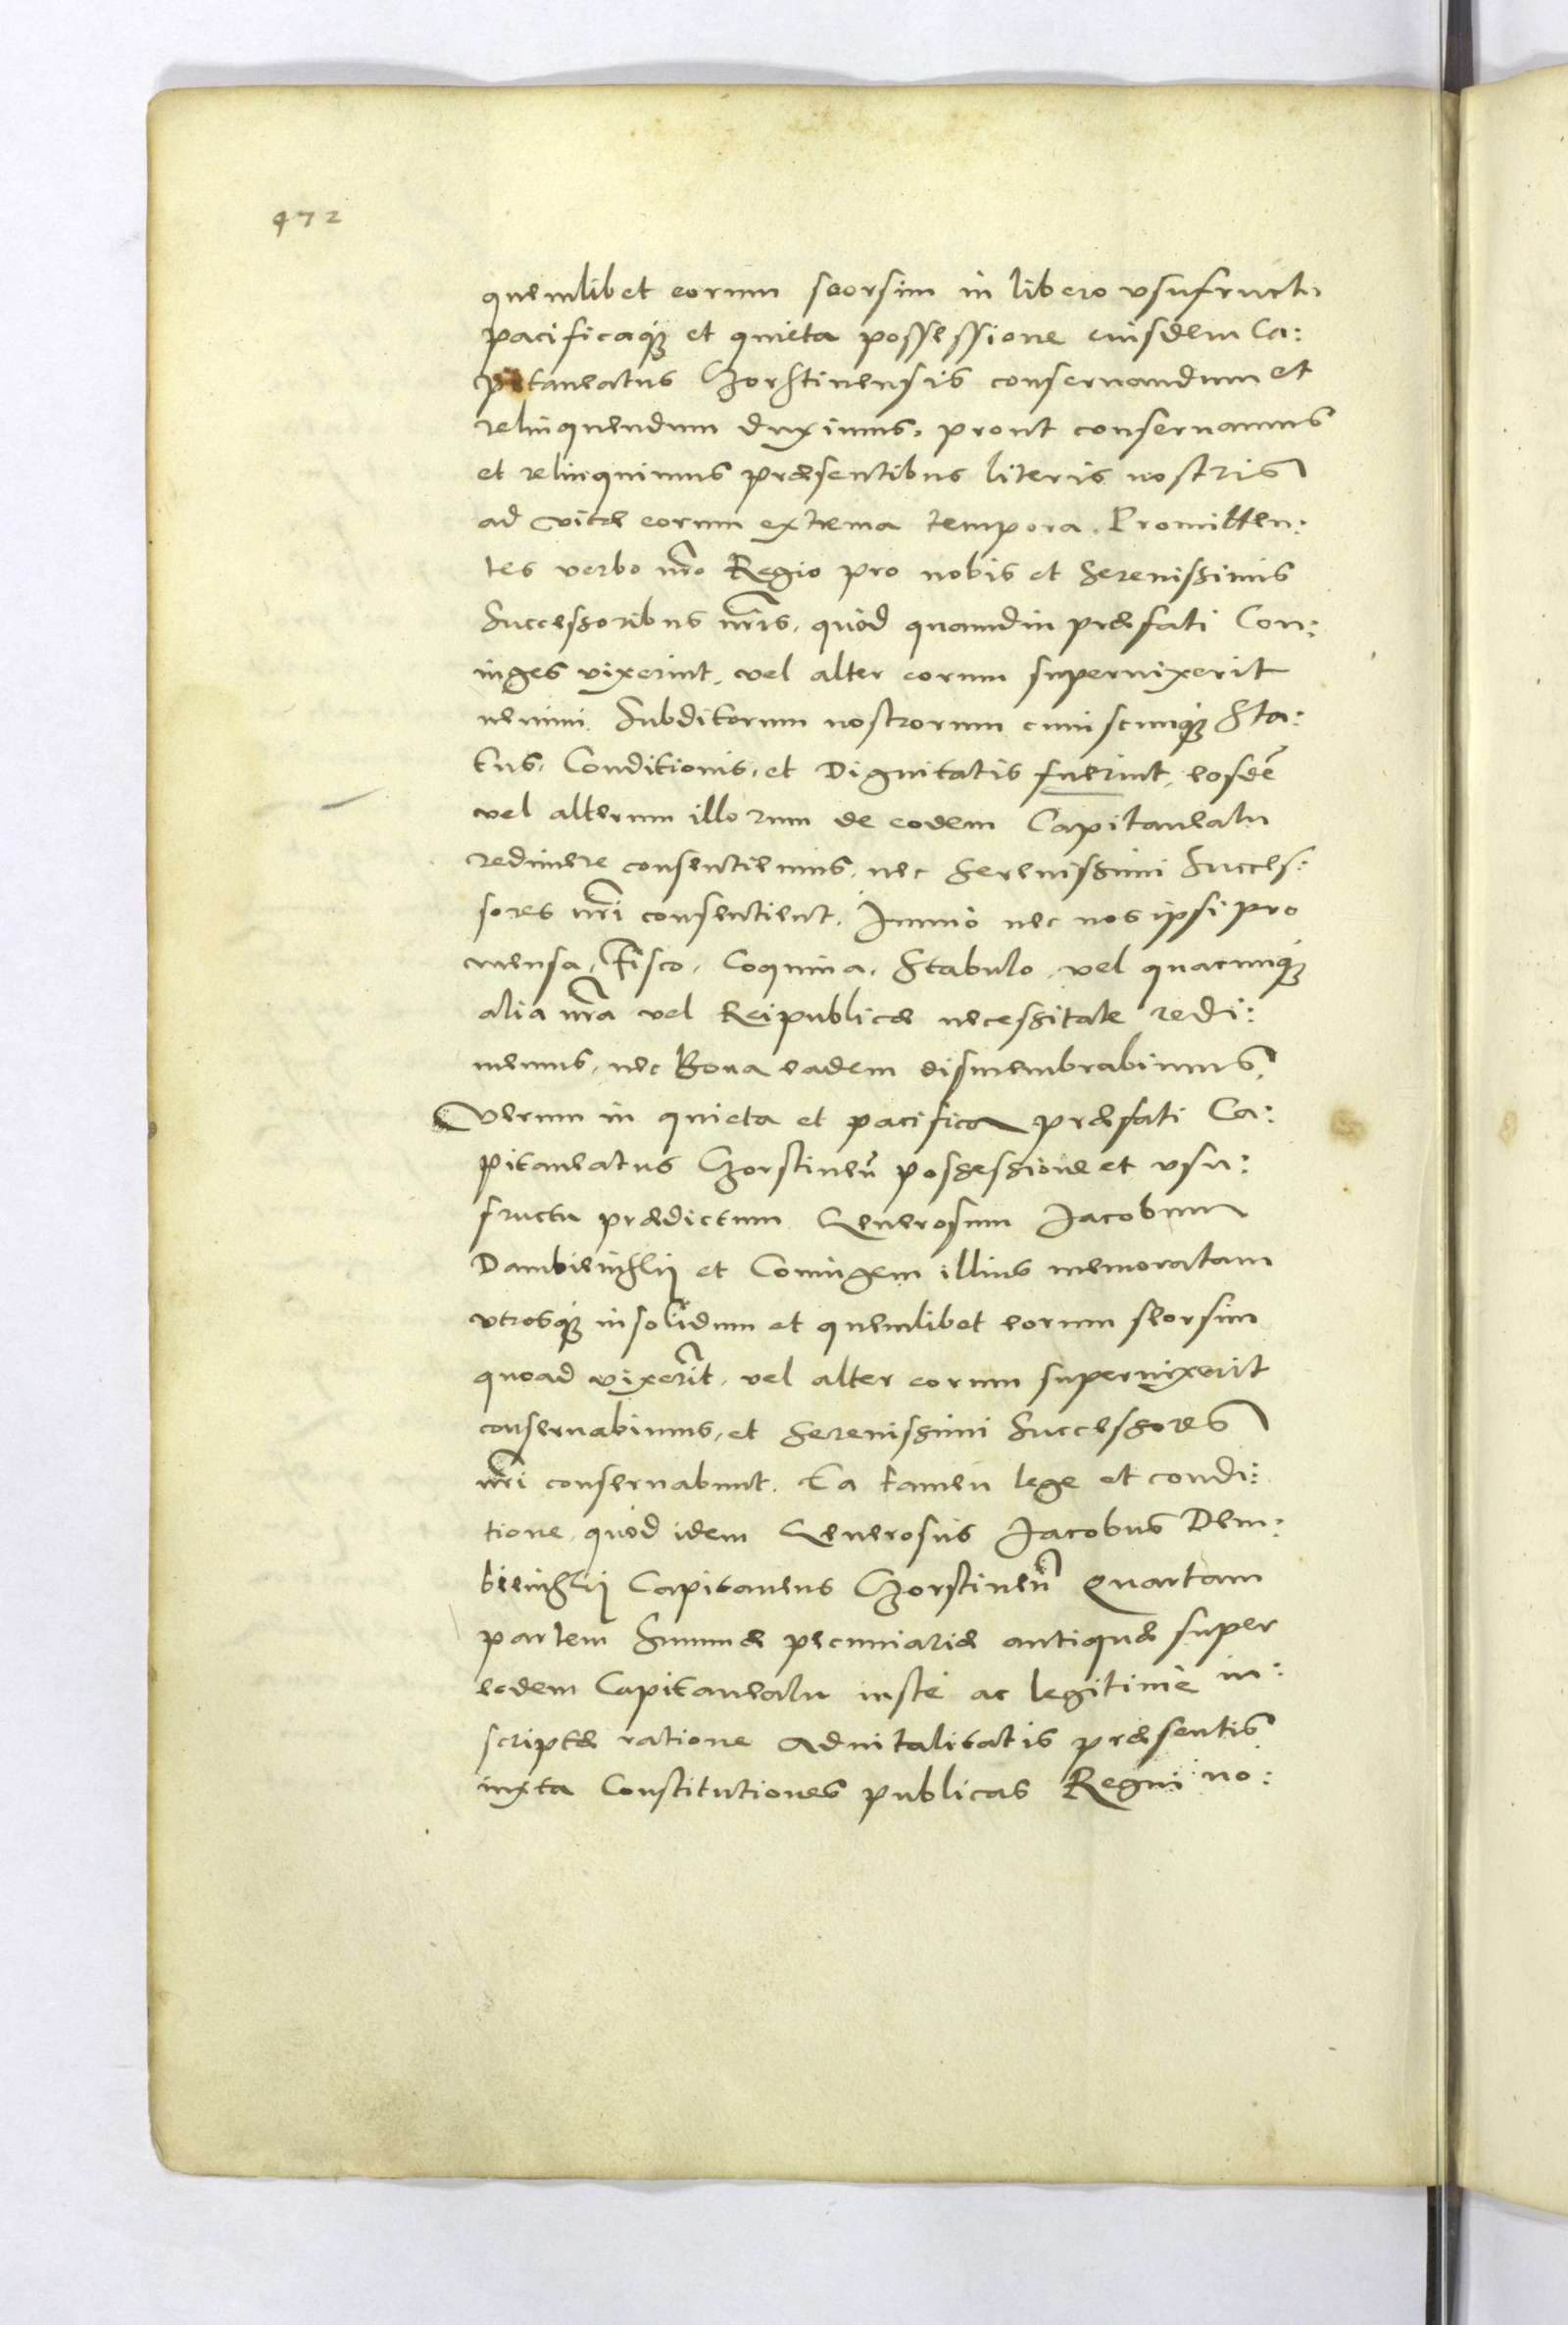 472
quemlibet eorum seorsim in libero usufructu
pacificaqꝫ et quieta possessione eiusdem Ca:
pitaneatus Chorstinensis conseruandum et
relinquendum duximus, prout conseruamus
et relinquimus præsentibus literis nostris
ad vitæ eorum extrema tempora. Promitten:
tes verbo nr̃o Regio pro nobis et Serenissimis
Successoribus nr̃is, quòd quamdiu præfati Con:
iuges vixerint, vel alter eorum superuixerit
nemini Subditorum nostrorum cuiuscunqꝫ Sta:
tus, Conditionis, et Dignitatis fuerint, eosdẽ
vel alterum illorum de eodem Capitaneatu
redimere consentiemus, nec Serenissimi Succes:
sores nr̃i consentient. Immò nec nos ipsi pro
mensa, Fisco, Coquina, Stabulo, vel quacunqꝫ
alia nr̃a vel Reipublicæ necessitate redi:
memus, nec Bona eadem dismembrabimus,
Verum in quieta et pacifica præfati Ca:
pitaneatus Chorstineñ possessione et vsu:
fructu prædictum Generosum Jacobum
Dambieinskij et Coniugem illius memoratam
vtrosqꝫ insolidum et quemlibet eorum seorsim
quoad vixerĩt, vel alter eorum superuixerit
conseruabimus, et Serenissimi Successores
nr̃i conseruabunt. Ea tamen lege et condi:
tione, quòd idem Generosus Jacobus Dem:
bieinskij Capitaneus Chorstineñ Quartam
partem Summæ pecuniariæ antiquæ super
eodem Capitaneatu iustè ac legitimè in:
scriptæ ratione aduitalitatis præsentis
iuxta Constitutiones publicas Regni no: